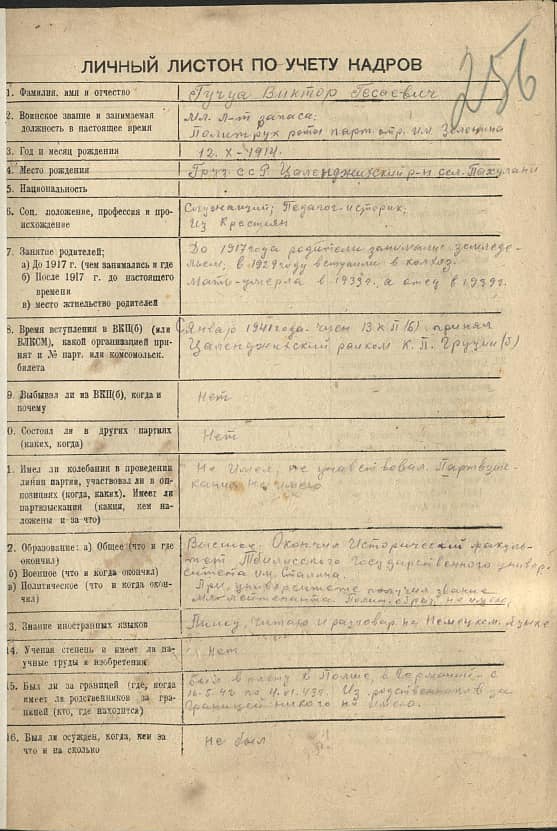 256
ЛИЧНЫЙ ЛИСТОК ПО УЧЕТУ КАДРОВ
1. Фамилия, имя и отчество
Гучуа Виктор Гесаевич
2. Воинское звание и занимаемая
должность в настоящее время
Мл. Л-т запаса;
Политрук роты парт. отр. им. Зелонина
3. Год и месяц рождения
12. X - 1914.
4. Место рождения
Груз. ССР Цаленджихский р-н сел. Пахулани
5. Национальность
6. Соц. положение, профессия и про-
исхождение
Служащий; Педагог-историк;
Из Крестьян
7. Занятие родителей;
а) До 1917 г. (чем занимались и где
б) После 1917 г. до настоящего
времени
в) место жтиельство родителей
До 1917 года родители занимались земледе-
льем, в 1929 году вступили в колхоз.
Мать умерла в 1933 г. а отец в 1939 г.
8. Время вступления в ВКП(б) (или
ВЛКСМ), какой организацией при-
нят и № парт. или комсомольск.
билета
С Январю 1941 года. член ВКП(б) принят
Цаленджихский райком К. П. Грузии (б)
9. Выбывал ли из ВКП(б), когда и
почему
Нет
0. Состоял ли в других партиях
(каких, когда)
Нет
1. Имел ли колебания в проведении
линии партии, участвовал ли в оп-
позициях (когда, каких). Имеет ли
партвзыскания (какия, кем на-
ложены и за что)
Не имел, не учавствовал. Партвзыс-
кание не имею
2. Образование: а) Общее (что и где
окончил)
б) Военное (что и когда окончил)
в) Политическое (что и когда окон-
чил)
Высшее. Окончил Исторический факуль-
тет Тбилисского Государственного универ-
ситета им. Сталина.
При университете получил звание
мл. лейтенанта. Полит. образ. не имею.
3. Знание иностранных языков
Пишу, читаю и разговар. на Немецком. языке
14. Ученая степень и имеет ли на-
учные труды и изобретения
Нет
15. Был ли за границей (где, когда
имеет ли родственников за гра-
ницей (кто, где находится)
Был в плену в Польше, в Германии - с
16.5.42 по 4.VI.43 г. Из родственников за
границей никого не имею.
16. Был ли осужден, когда, кем за
что и на сколько
Не был